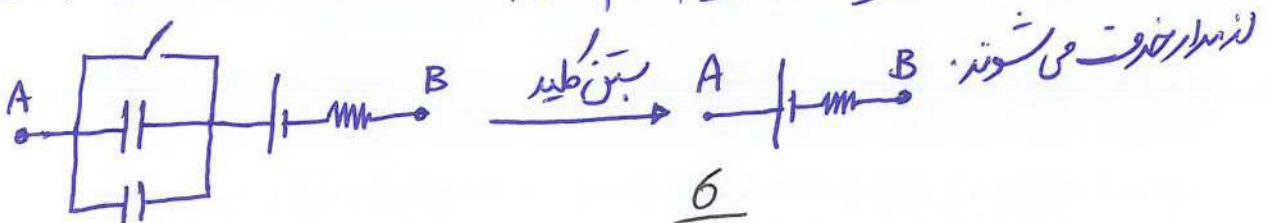 از مدار خدف می شوند.
A B بستن کلید A B
6